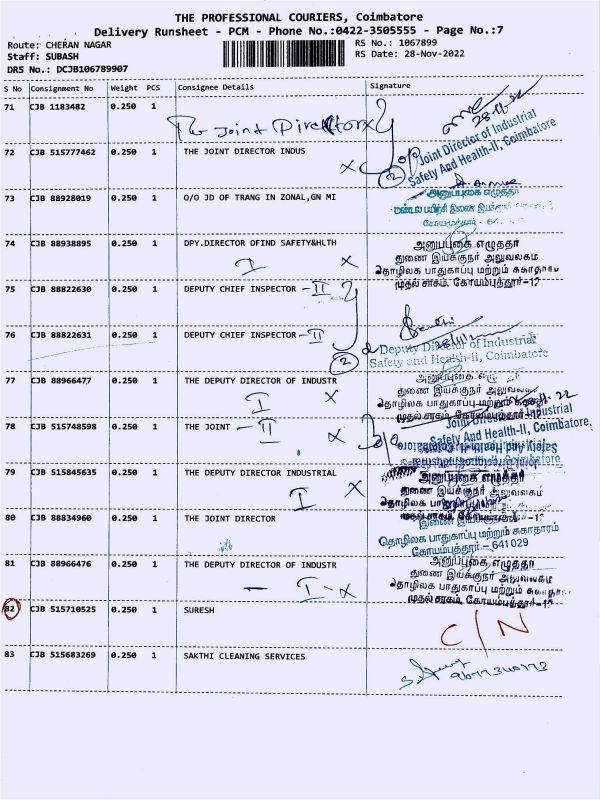 THE PROFESSIONAL COURIERS, Coimbatore
Delivery Runsheet - PCM - Phone No.:0422-3505555 - Page No.:7
Route: CHERAN NAGAR
RS No.: 1067899
Staff: SUBASH
RS Date: 28-Nov-2022
DRS No.: DCJB106789907
S No Consignment No Weight PCS Consignee Details Signature
71 CJB 1183482 0.250 1
The Joint Director x
Joint Director of Industrial
Safety And Health-II, Coimbatore
72 CJB 515777462 0.250 1 THE JOINT DIRECTOR INDUS
x 2
73 CJB 88928019 0.250 1 O/O JD OF TRANG IN ZONAL,GN MI
74 CJB 88938895 0.250 1 DPY.DIRECTOR OFIND SAFETY&HLTH
I x
அனுப்புகை எழுத்தர்
துணை இயக்குநர் அலுவலகம்
தொழிலக பாதுகாப்பு மற்றும் சுகாதாரம்
முதல் சரகம், கோயம்புத்தூர்-12
75 CJB 88822630 0.250 1 DEPUTY CHIEF INSPECTOR - II
76 CJB 88822631 0.250 1 DEPUTY CHIEF INSPECTOR - II
2
Deputy Director of Industrial
Safety and Health-II, Coimbatore
77 CJB 88966477 0.250 1 THE DEPUTY DIRECTOR OF INDUSTR
I x
78 CJB 515748598 0.250 1 THE JOINT - II
x
Joint Director Industrial
Safety And Health-II, Coimbatore
79 CJB 515845635 0.250 1 THE DEPUTY DIRECTOR INDUSTRIAL
I x
அனுப்புகை எழுத்தர்
துணை இயக்குநர் அலுவலகம்
80 CJB 88834960 0.250 1 THE JOINT DIRECTOR
தொழிலக பாதுகாப்பு மற்றும் சுகாதாரம்
கோயம்புத்தூர் - 641029
81 CJB 88966476 0.250 1 THE DEPUTY DIRECTOR OF INDUSTR
- I - x
அனுப்புகை எழுத்தர்
துணை இயக்குநர் அலுவலகம்
தொழிலக பாதுகாப்பு மற்றும்
முதல் சரகம், கோயம்புத்தூர்-12
82 CJB 515710525 0.250 1 SURESH
C/N
83 CJB 515683269 0.250 1 SAKTHI CLEANING SERVICES